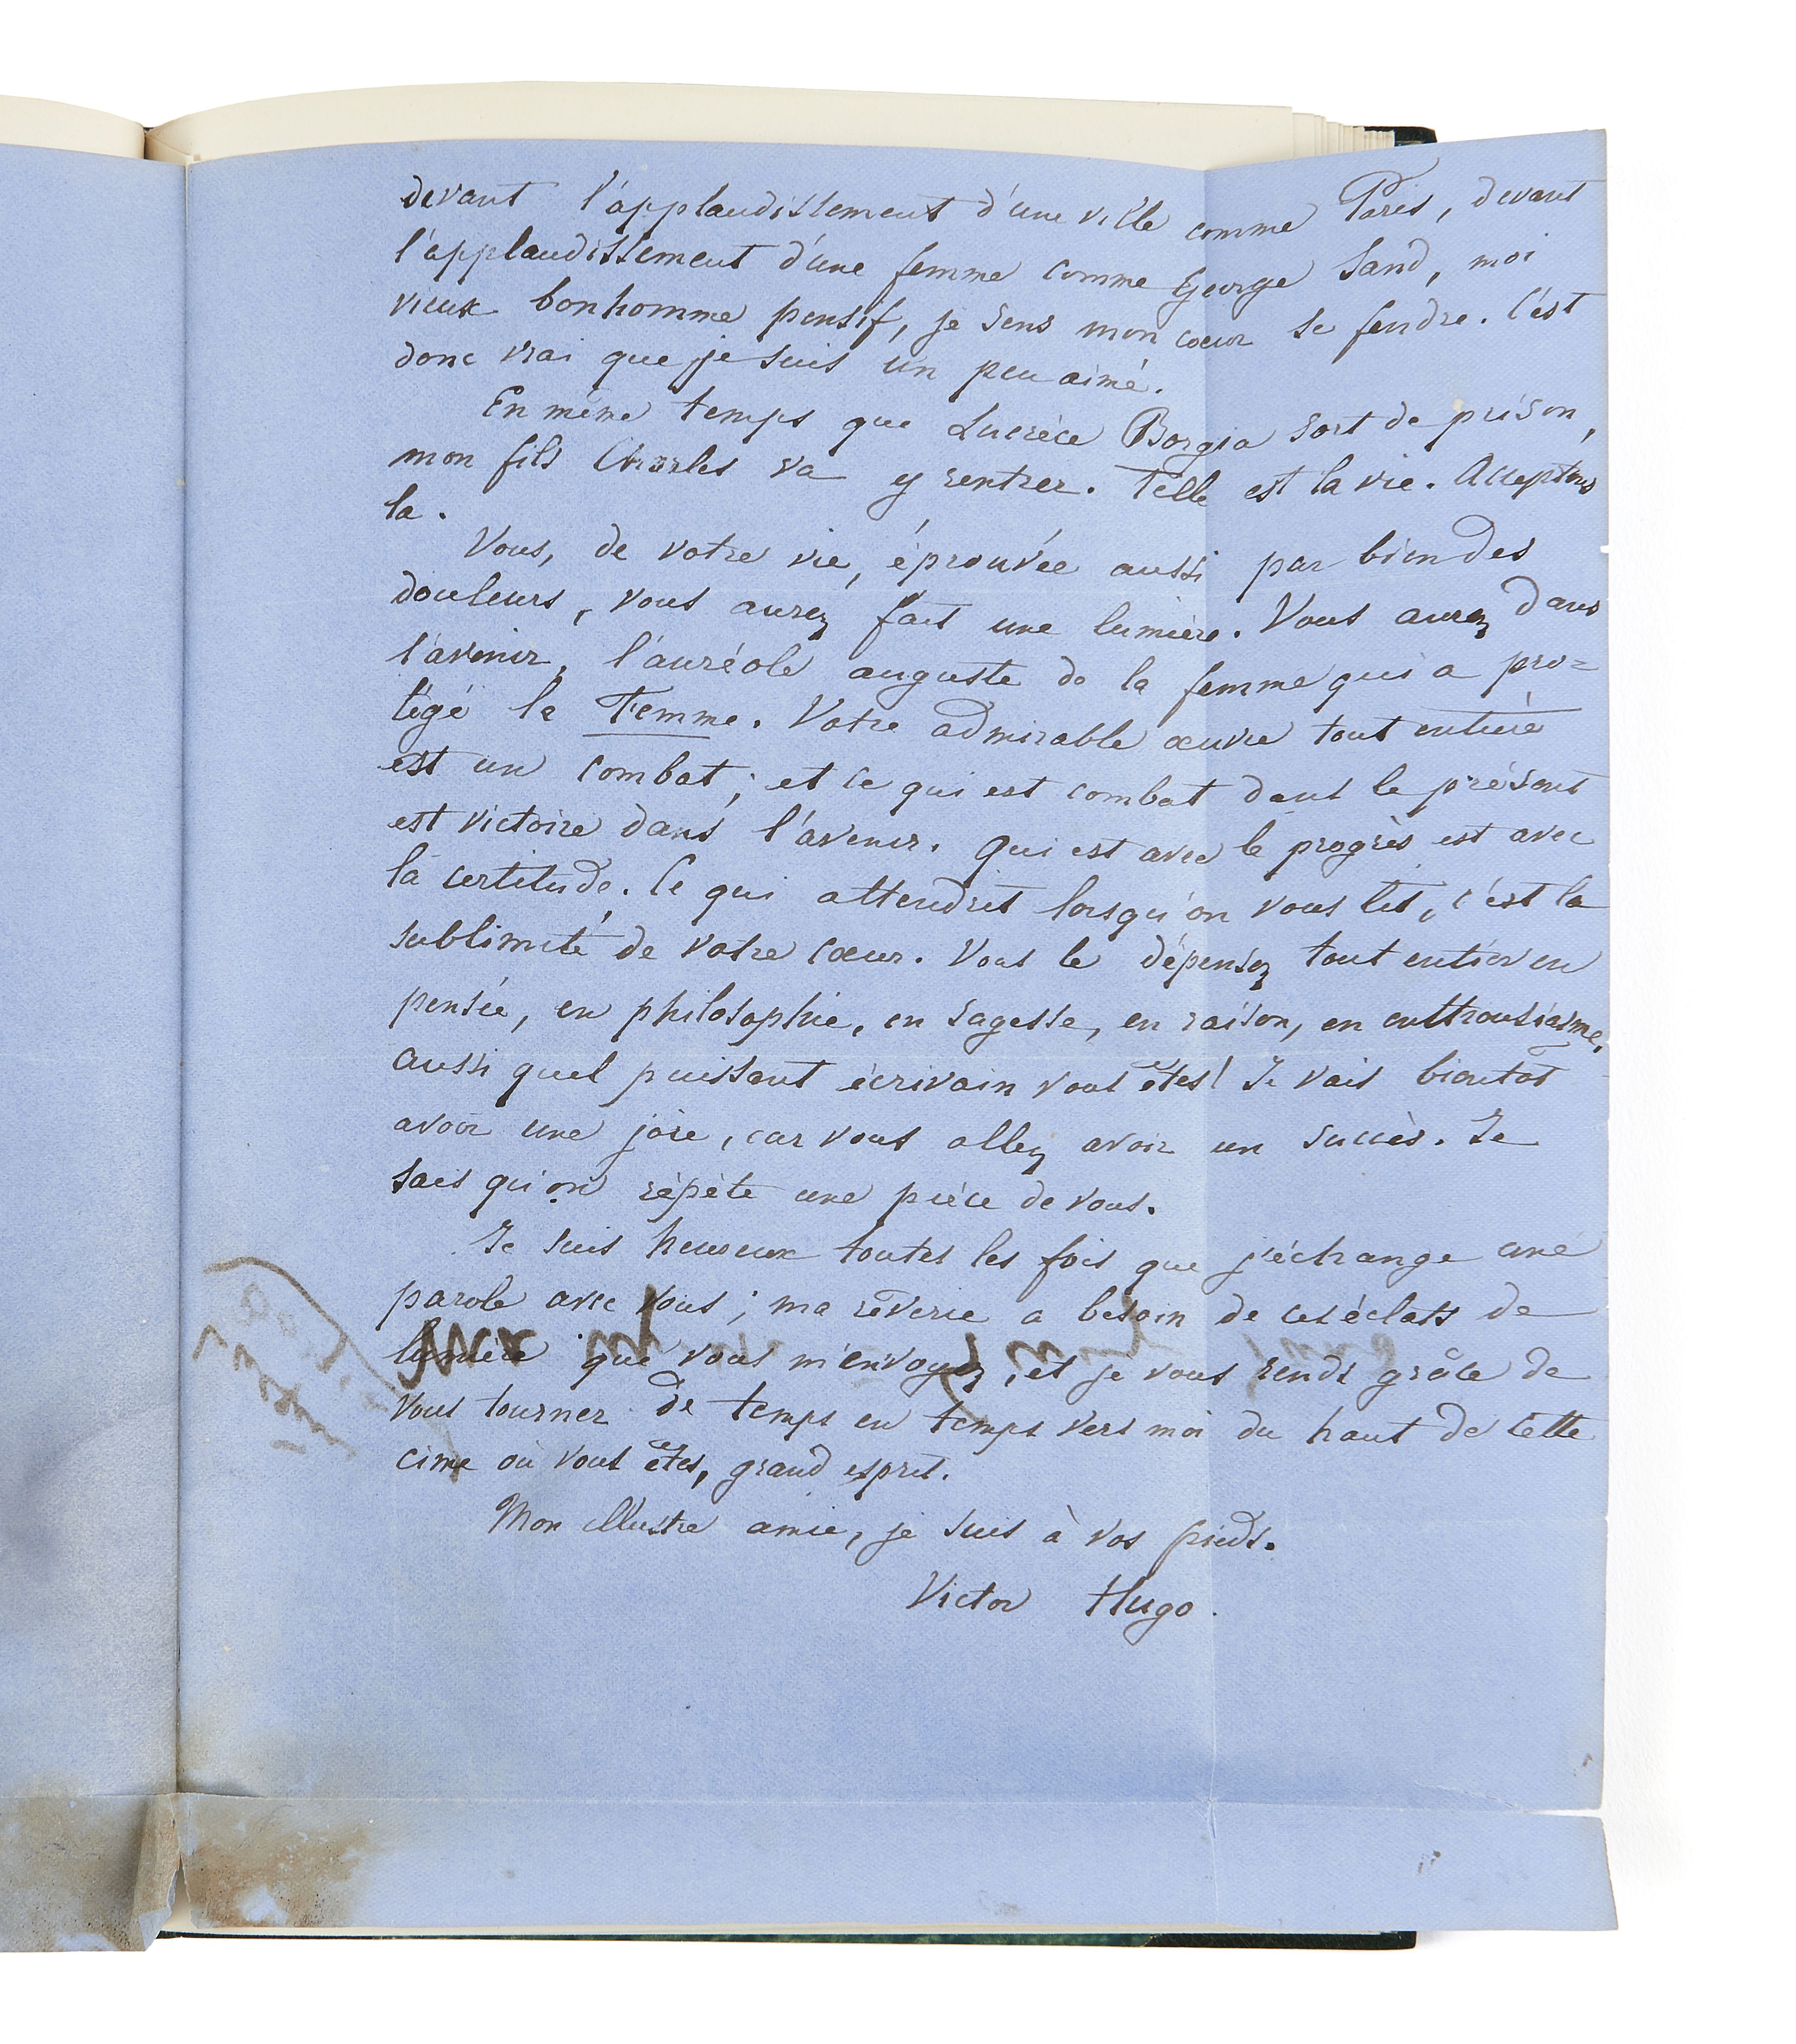 devant l'applaudissement d'une ville comme Paris, devant
l'applaudissement d'une femme comme George Sand, moi
vieux bonhomme pensif, je sens mon cœur se fendre. C'est
donc vrai que je suis un peu aimé.
En même temps que Lucrèce Borgia sort de prison,
mon fils Charles va y rentrer. Telle est la vie. Acceptons
la.
Vous, de votre vie, éprouvée aussi par bien des
douleurs, vous aurez fait une lumière. Vous aurez dans
l'avenir, l'auréole auguste de la femme qui a pro=
tégé la Femme. Votre admirable œuvre tout entière
est un combat; et ce qui est combat dans le présent
est victoire dans l'avenir. Qui est avec le progrès est avec
la certitude. Ce qui attendrit lorsqu'on vous lit, c'est la
sublimité de votre cœur. Vous le dépensez tout entier en
pensée, en philosophie, en sagesse, en raison, en enthousiasme,
aussi quel puissant écrivain vous êtes! Je vais bientôt
avoir une joie, car vous allez avoir un succès. Je
sais qu'on répète une pièce de vous.
Je suis heureux toutes les fois que j'échange une
parole avec vous; ma rêverie a besoin de ces éclats de
lumière que vous m'envoyez, et je vous rends grâce de
vous tourner de temps en temps vers moi du haut de cette
cime où vous êtes, grand esprit.
Mon illustre amie, je suis à vos pieds.
Victor Hugo.